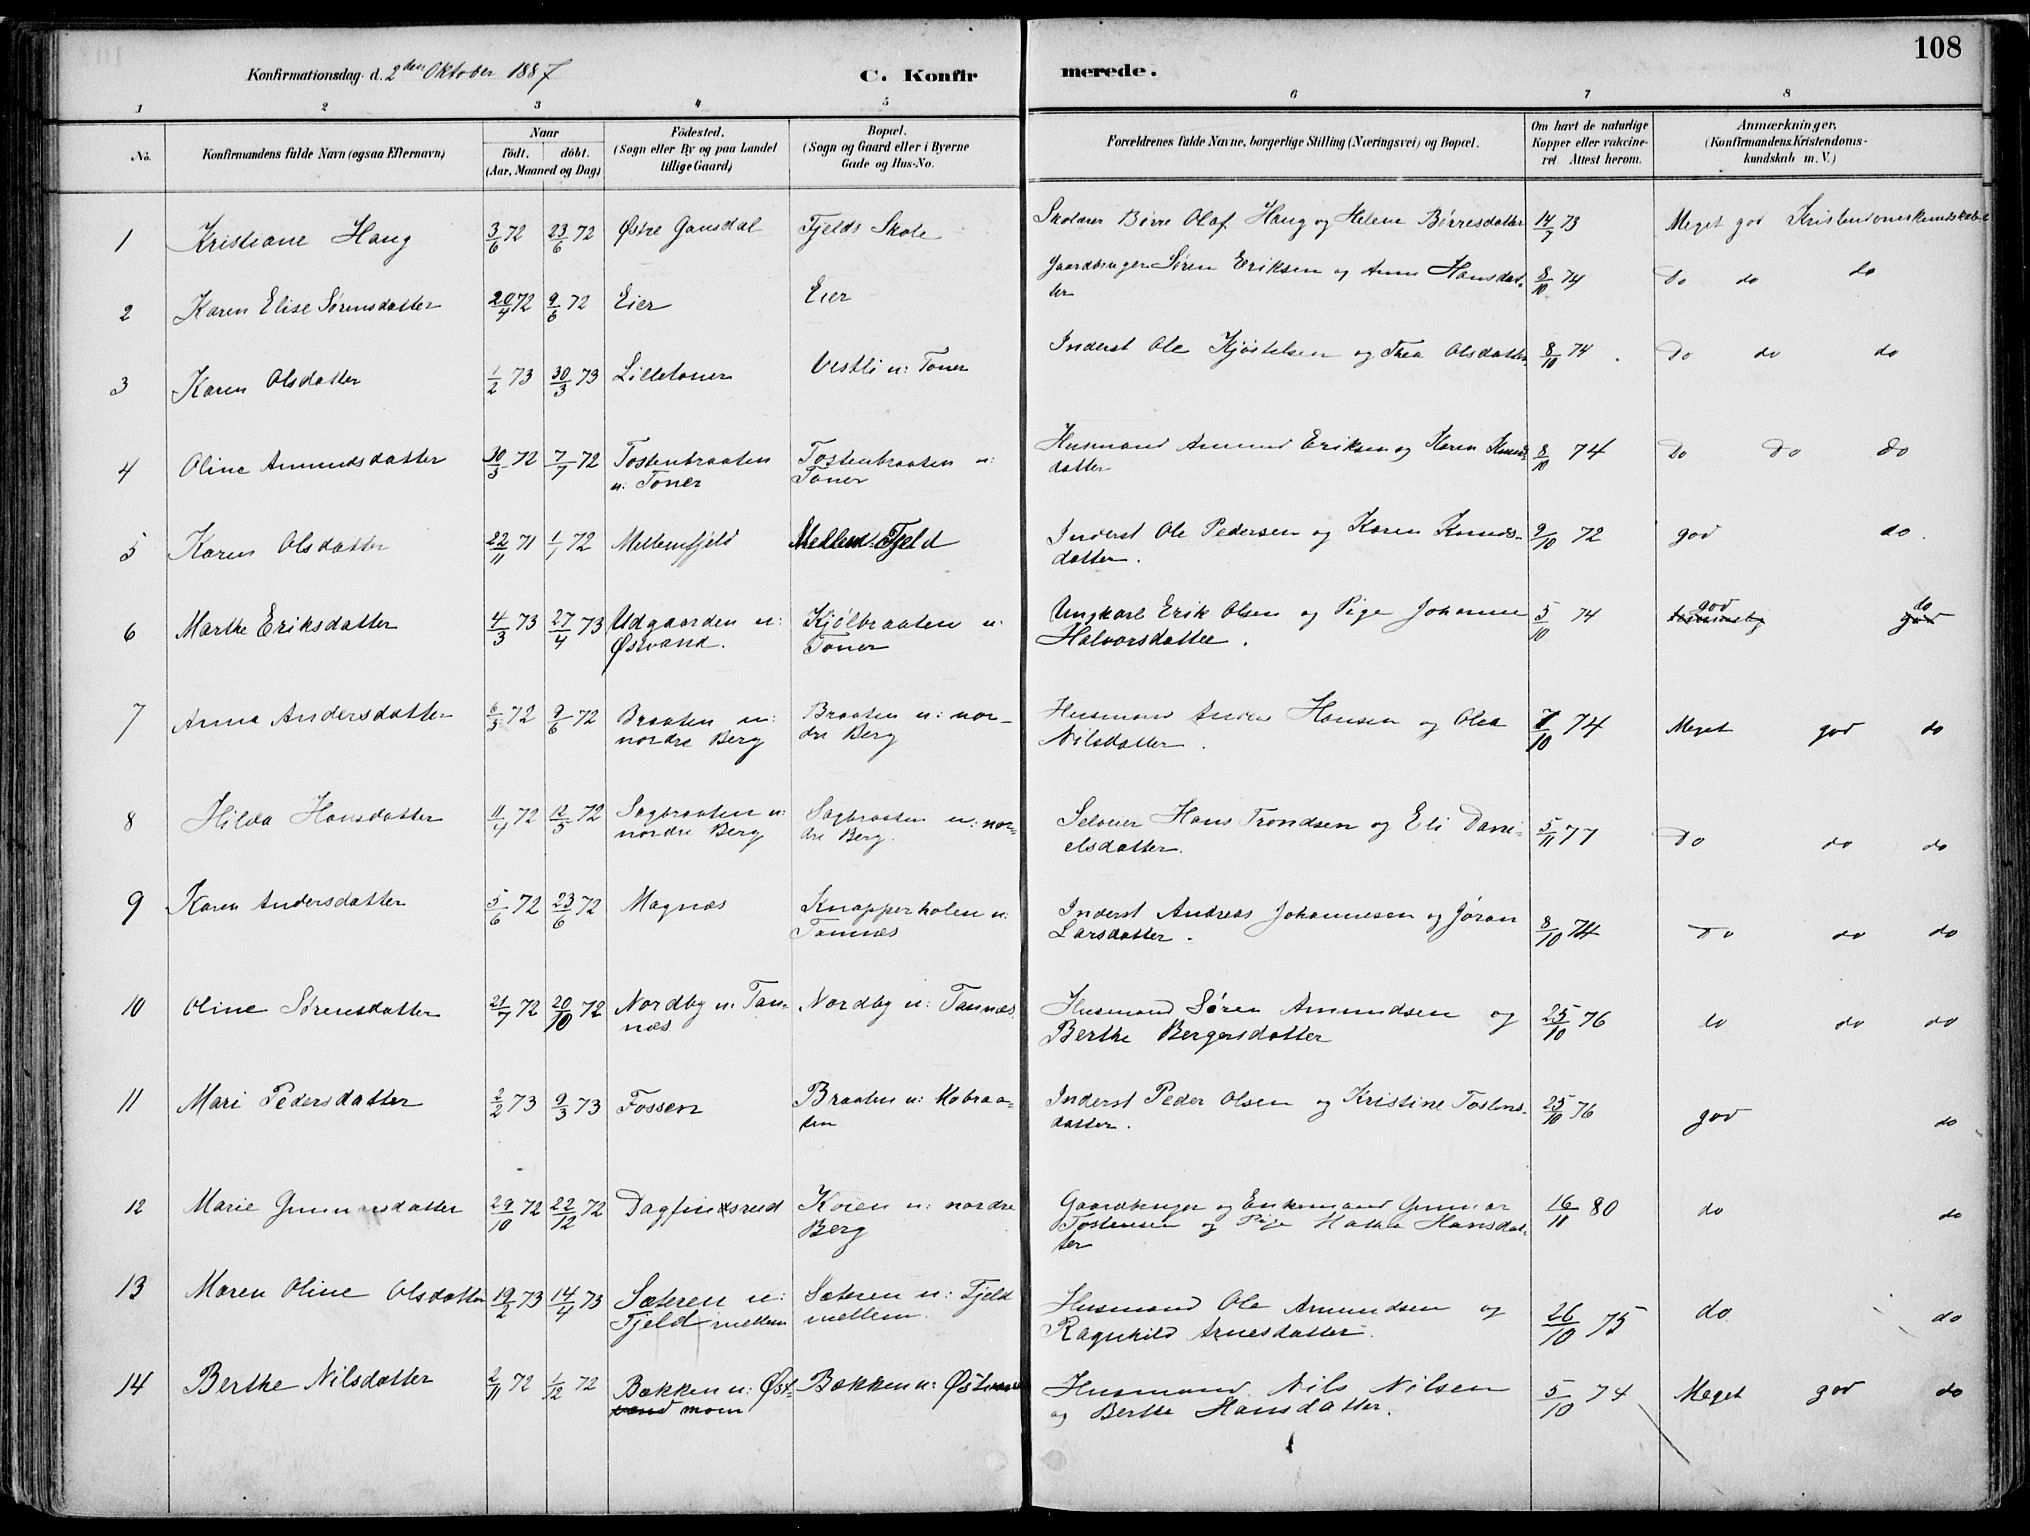 108
Konfirmationsdag d. 2den Oktober 1887
C. Konfirmerede.
1 2 3 4 5 6 7 8
No. Konfirmandens fulde Navn (ogsaa Efternavn) Naar födt. döbt. (Aar, Maaned og Dag) Födested. (Sogn eller By og paa Landet tillige Gaard) Bopæl. (Sogn og Gaard eller i Byerne Gade og Hus-No. Forældrenes fulde Navne, borgerlige Stilling (Næringsvei) og Bopæl. Om havt de naturlige Kopper eller vakcineret Attest herom. Anmærkninger. (Konfirmandens Kristendomskundskab m. V.)
1 Kristiane Haug 3/6 72 23/6 72 Østre Gansdal Fjelds Skole Skolærer Børre Olaf Haug og Helene Børresdatter 14/7 73 Meget god Kristendomskundskab
2 Karen Elise Sørensdatter 20/4 72 9/6 72 Eier Eier Gaardbruger Søren Eriksen og Anne Hansdat-
ter 8/10 74 Do do do
3 Karen Olsdatter 1/2 73 30/3 73 Lilletoner Vestli u: Toner Inderst Ole Kjøstelsen og Thea Olsdatter 8/10 74 Do do do
4 Oline Amundsdatter 30/5 72 7/7 72 Tostenbraaten Tostenbraaten u: Husmand Amund Eriksen og Karen Knuds-
u: Toner Toner datter 8/10 74 Do Do Do
5 Karen Olsdatter 22/11 71 1/1 72 Mellemfjeld Mellem Fjeld Inderst Ole Pedersen og Karen Knuds-
datter. 9/10 72 god do.
6 Marthe Eriksdatter 4/3 73 27/4 73 Udgaarden u: Kjölbraaten u: Ungkarl Erik Olsen og Pige Johanne
Østvand. Toner Halvorsdatter. 5/10 74 god do god
7 Anna Andersdatter 6/5 72 9/6 72 Braaten u: Braaten u: nor- Husmand Anders Hansen og Olea
nordre Berg dre Berg Nilsdatter. 7/10 74 Meget god do
8 Hilda Hansdatter 11/4 72 12/5 72 Sagbraaten u: Sagbraaten u: nor- Selveier Hans Trondsen og Eli Dani-
nordre Berg dre Berg. elsdatter. 5/11 77 Do do do
9 Karen Andersdatter 5/6 72 23/6 72 Magnæs Knapperholen u: Inderst Andreas Johannesen og Jøran
Tannæs Larsdatter. 8/10 74 Do do do
10 Oline Sørensdatter 21/7 72 20/10 72 Nordby u: Tan- Nordby u: Tannæs. Husmand Søren Amundsen og
næs Berthe Bergersdatter 25/10 76 do do do
11 Mari Pedersdatter 2/2 73 9/3 73 Fossen Braaten u: Mobraa- Inderst Peder Olsen og Kristine Tostens-
ten datter. 25/10 76 god do
12 Marie Gunnarsdatter 29/10 72 22/12 72 Dagfindsrud Koien u: nordre Gaardbruger og Enkemand Gunnar
Berg Tostensen og Pige Hansdat-
ter 16/11 80 do do
13 Maren Oline Olsdatter 19/2 73 14/4 73 Sæteren u: Sæteren u: Fjeld Husmand Ole Amundsen og
Fjeld mellem mellem. Ragnhild Arnesdatter. 26/10 75 do do
14 Berthe Nilsdatter 2/11 72 1/12 72 Bakken u: Øst- Bakken u: Østmoen Husmand Nils Nilsen
vand moen og Berthe Hansdatter. 5/10 74 Meget god do